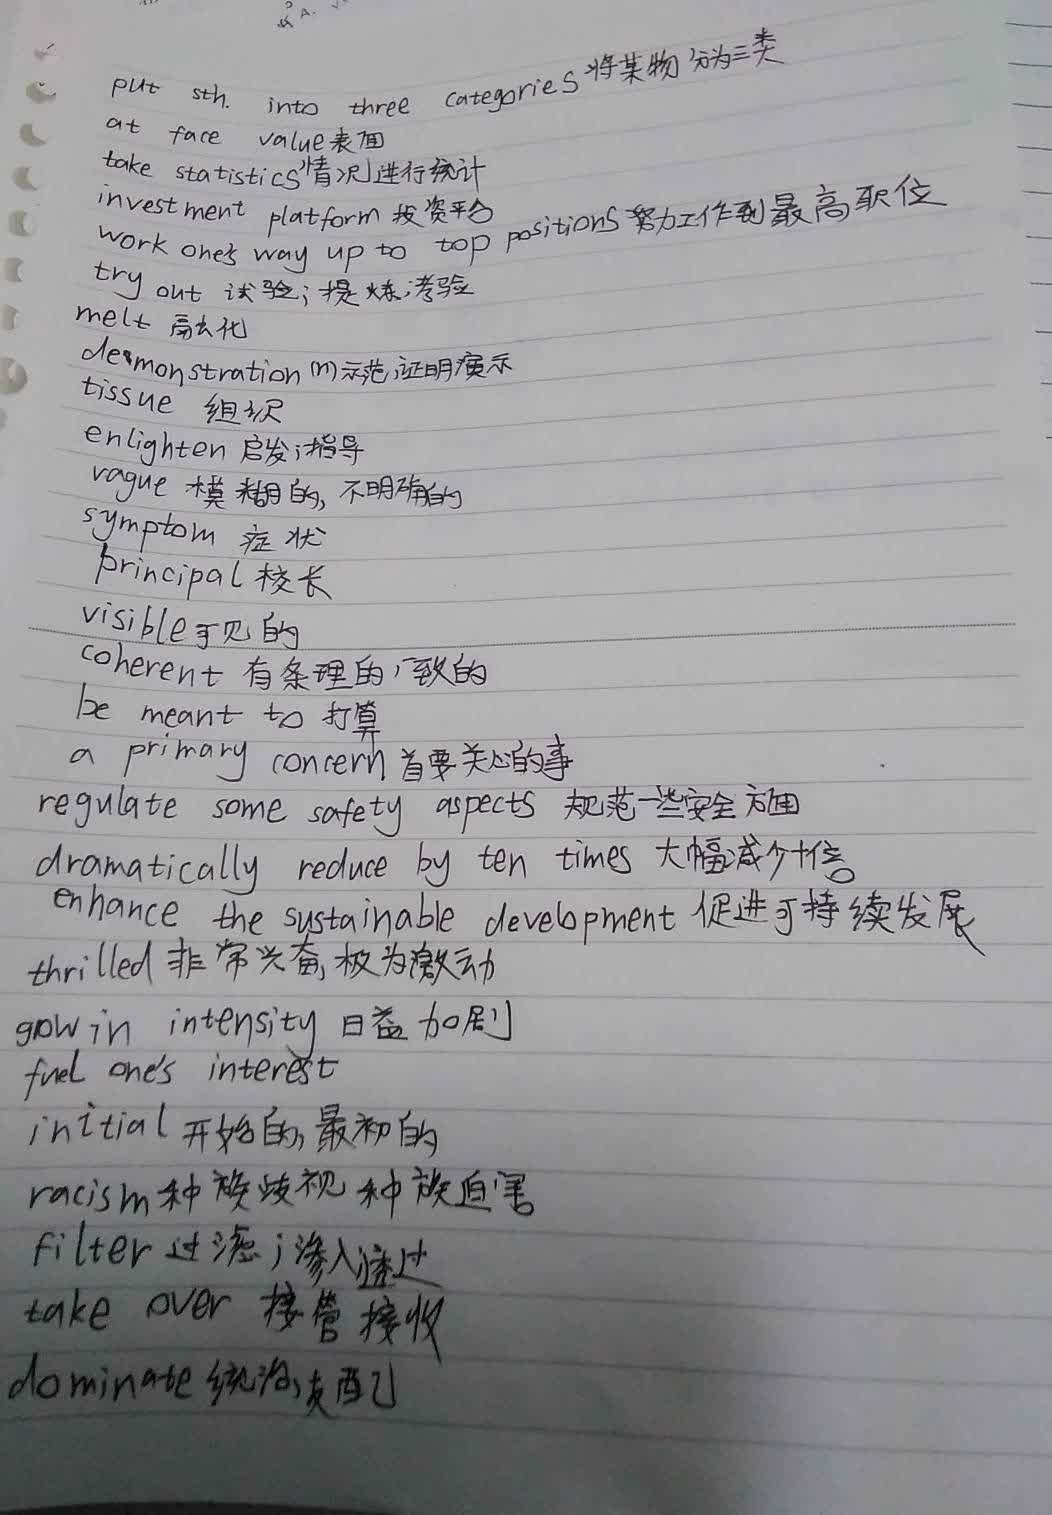 put sth. into three categories 将某物分为三类
at face value 表面
take statistics 情况进行统计
investment platform 投资平台
work one's way up to top positions 努力工作到最高职位
try out 试验;提炼;考验
melt 融化
demonstration (n) 示范,证明,演示
tissue 组织
enlighten 启发;指导
vague 模糊的,不明确的
symptom 症状
principal 校长
visible 可见的
coherent 有条理的,一致的
be meant to 打算
a primary concern 首要关心的事
regulate some safety aspects 规范一些安全方面
dramatically reduce by ten times 大幅减少十倍
enhance the sustainable development 促进可持续发展
thrilled 非常兴奋,极为激动
grow in intensity 日益加剧
fuel one's interest
initial 开始的,最初的
racism 种族歧视 种族迫害
filter 过滤;渗入,透过
take over 接管 接收
dominate 统治,支配